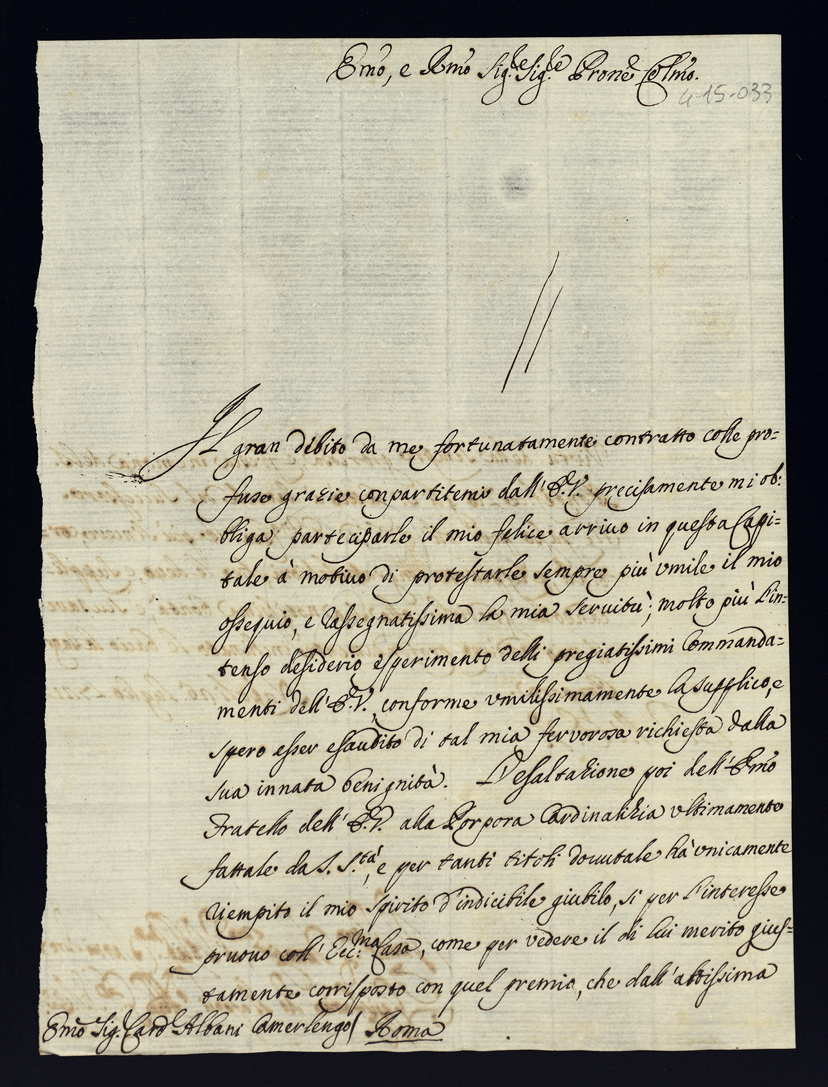 Emo, e Rmo Sig.re Sig.re Prone Colmo.
4-15-033
Il gran debito da me fortunatamente contratto colle pro=
fuse grazie conpartitemi dall'E.V. precisamente mi ob:
bliga parteciparle il mio felice arrivo in questa Capi=
tale à motivo di protestarle sempre più umile il mio
ossequio, e rassegnatissima la mia servitù; molto più l'in=
tenso desiderio esperimento delli pregiatissimi Commanda=
menti dell'E.V., conforme umilissimamente la supplico, e
spero esser esaudito di tal mia fervorosa richiesta dalla
sua innata benignità. L'esaltazione poi dell'Emo
Fratello dell'E.V. alla Porpora Cardinalizia ultimamente
fattale da S. S.tà, e per tanti titoli dovutale hà unicamente
riempito il mio spirito d'indicibile giubilo, si per l'interesse
pruovo coll'Ecc.ma Casa, come per vedere il di lui merito gius=
tamente corrisposto con quel premio, che dall'altissima
Emo Sig.r Card.l Albani Camerlengo / Roma